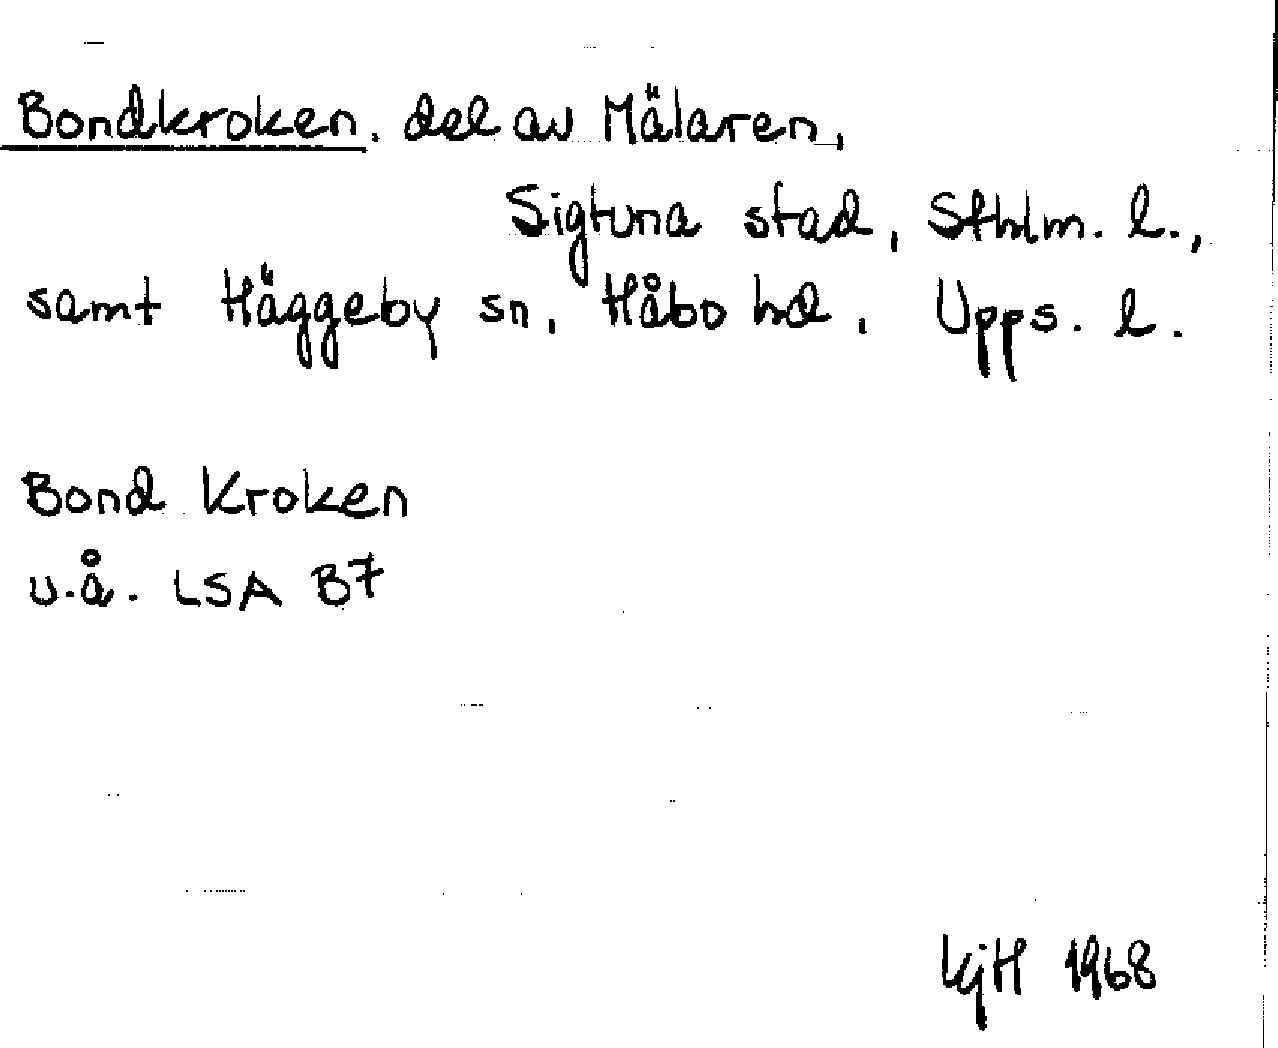 Bondkroken. del av Mälaren,
Sigtuna stad, Sthlm. l.,
samt Häggeby sn, Håbo hd, Upps. l.
Bond Kroken
u.å. LSA B7
KjH 1968